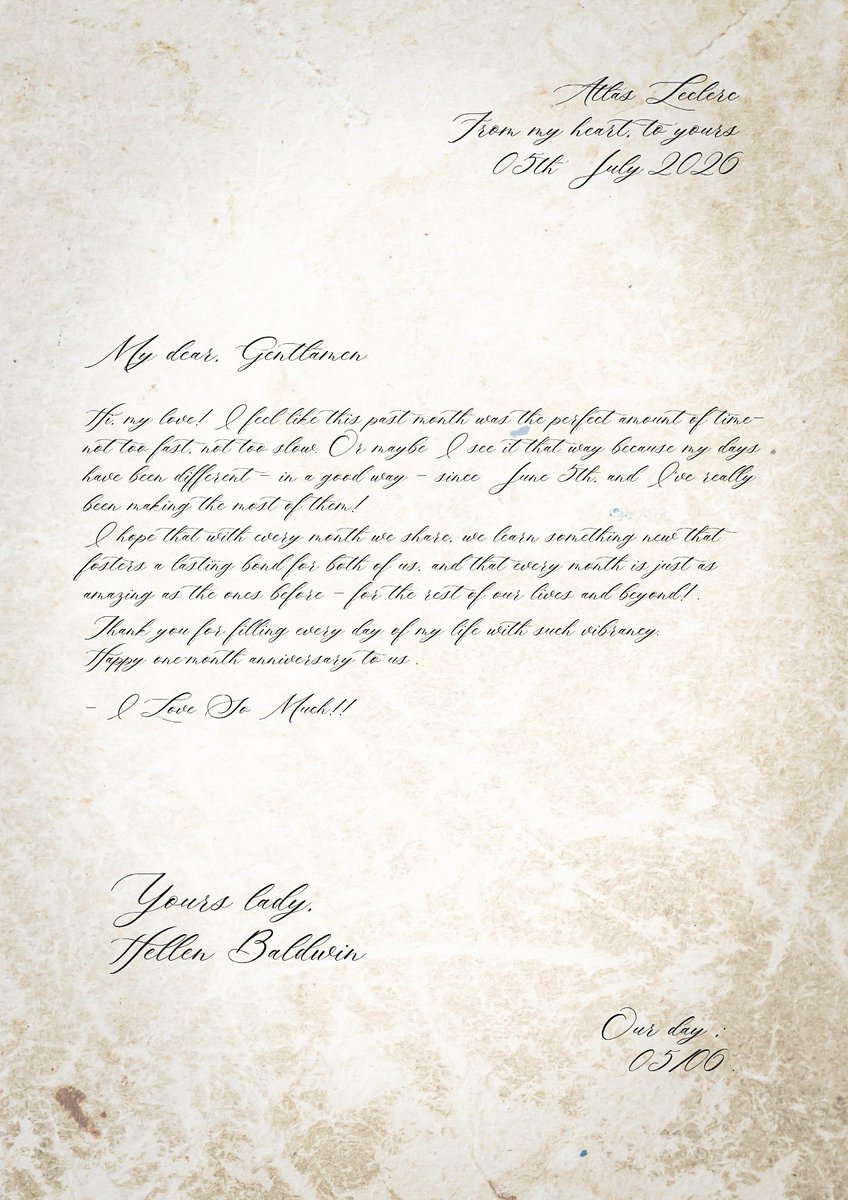 Atlas Leclerc
From my heart, to yours
05th July 2026
My dear, Gentlamen
Hi, my love! I feel like this past month was the perfect amount of time—
not too fast, not too slow. Or maybe I see it that way because my days
have been different – in a good way – since June 5th, and I've really
been making the most of them!
I hope that with every month we share, we learn something new that
fosters a lasting bond for both of us, and that every month is just as
amazing as the ones before – for the rest of our lives and beyond! .
Thank you for filling every day of my life with such vibrancy.
Happy one month anniversary to us .
- I Love So Much!!
Yours lady,
Hellen Baldwin
Our day :
05/06 .